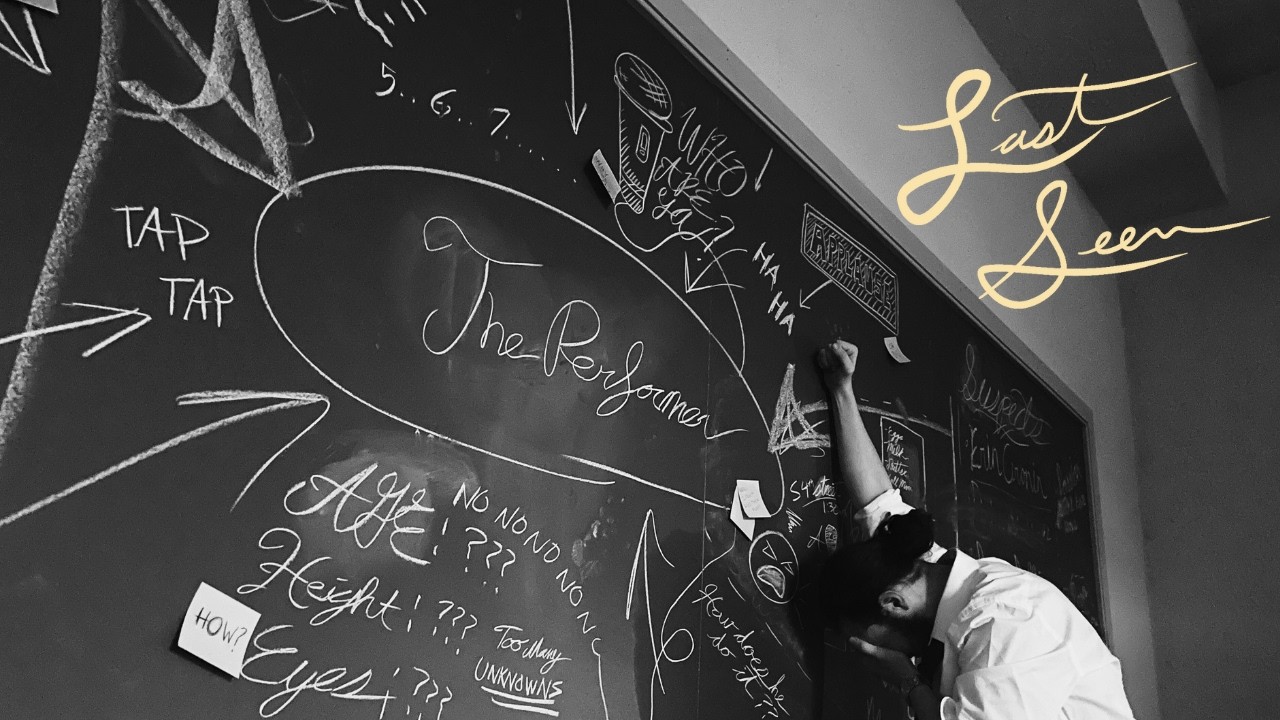 Last
Seen
5.. 6.. 7......
WHO
ARE
You?
TAP
TAP
HA
HA
The Performer
Suspects
Erin Cronin
AGE! ???
NO NO NO NO NO NO NO
Height! ???
Eyes! ???
HOW?
Too Many
UNKNOWNS
How does he
do it??
54th